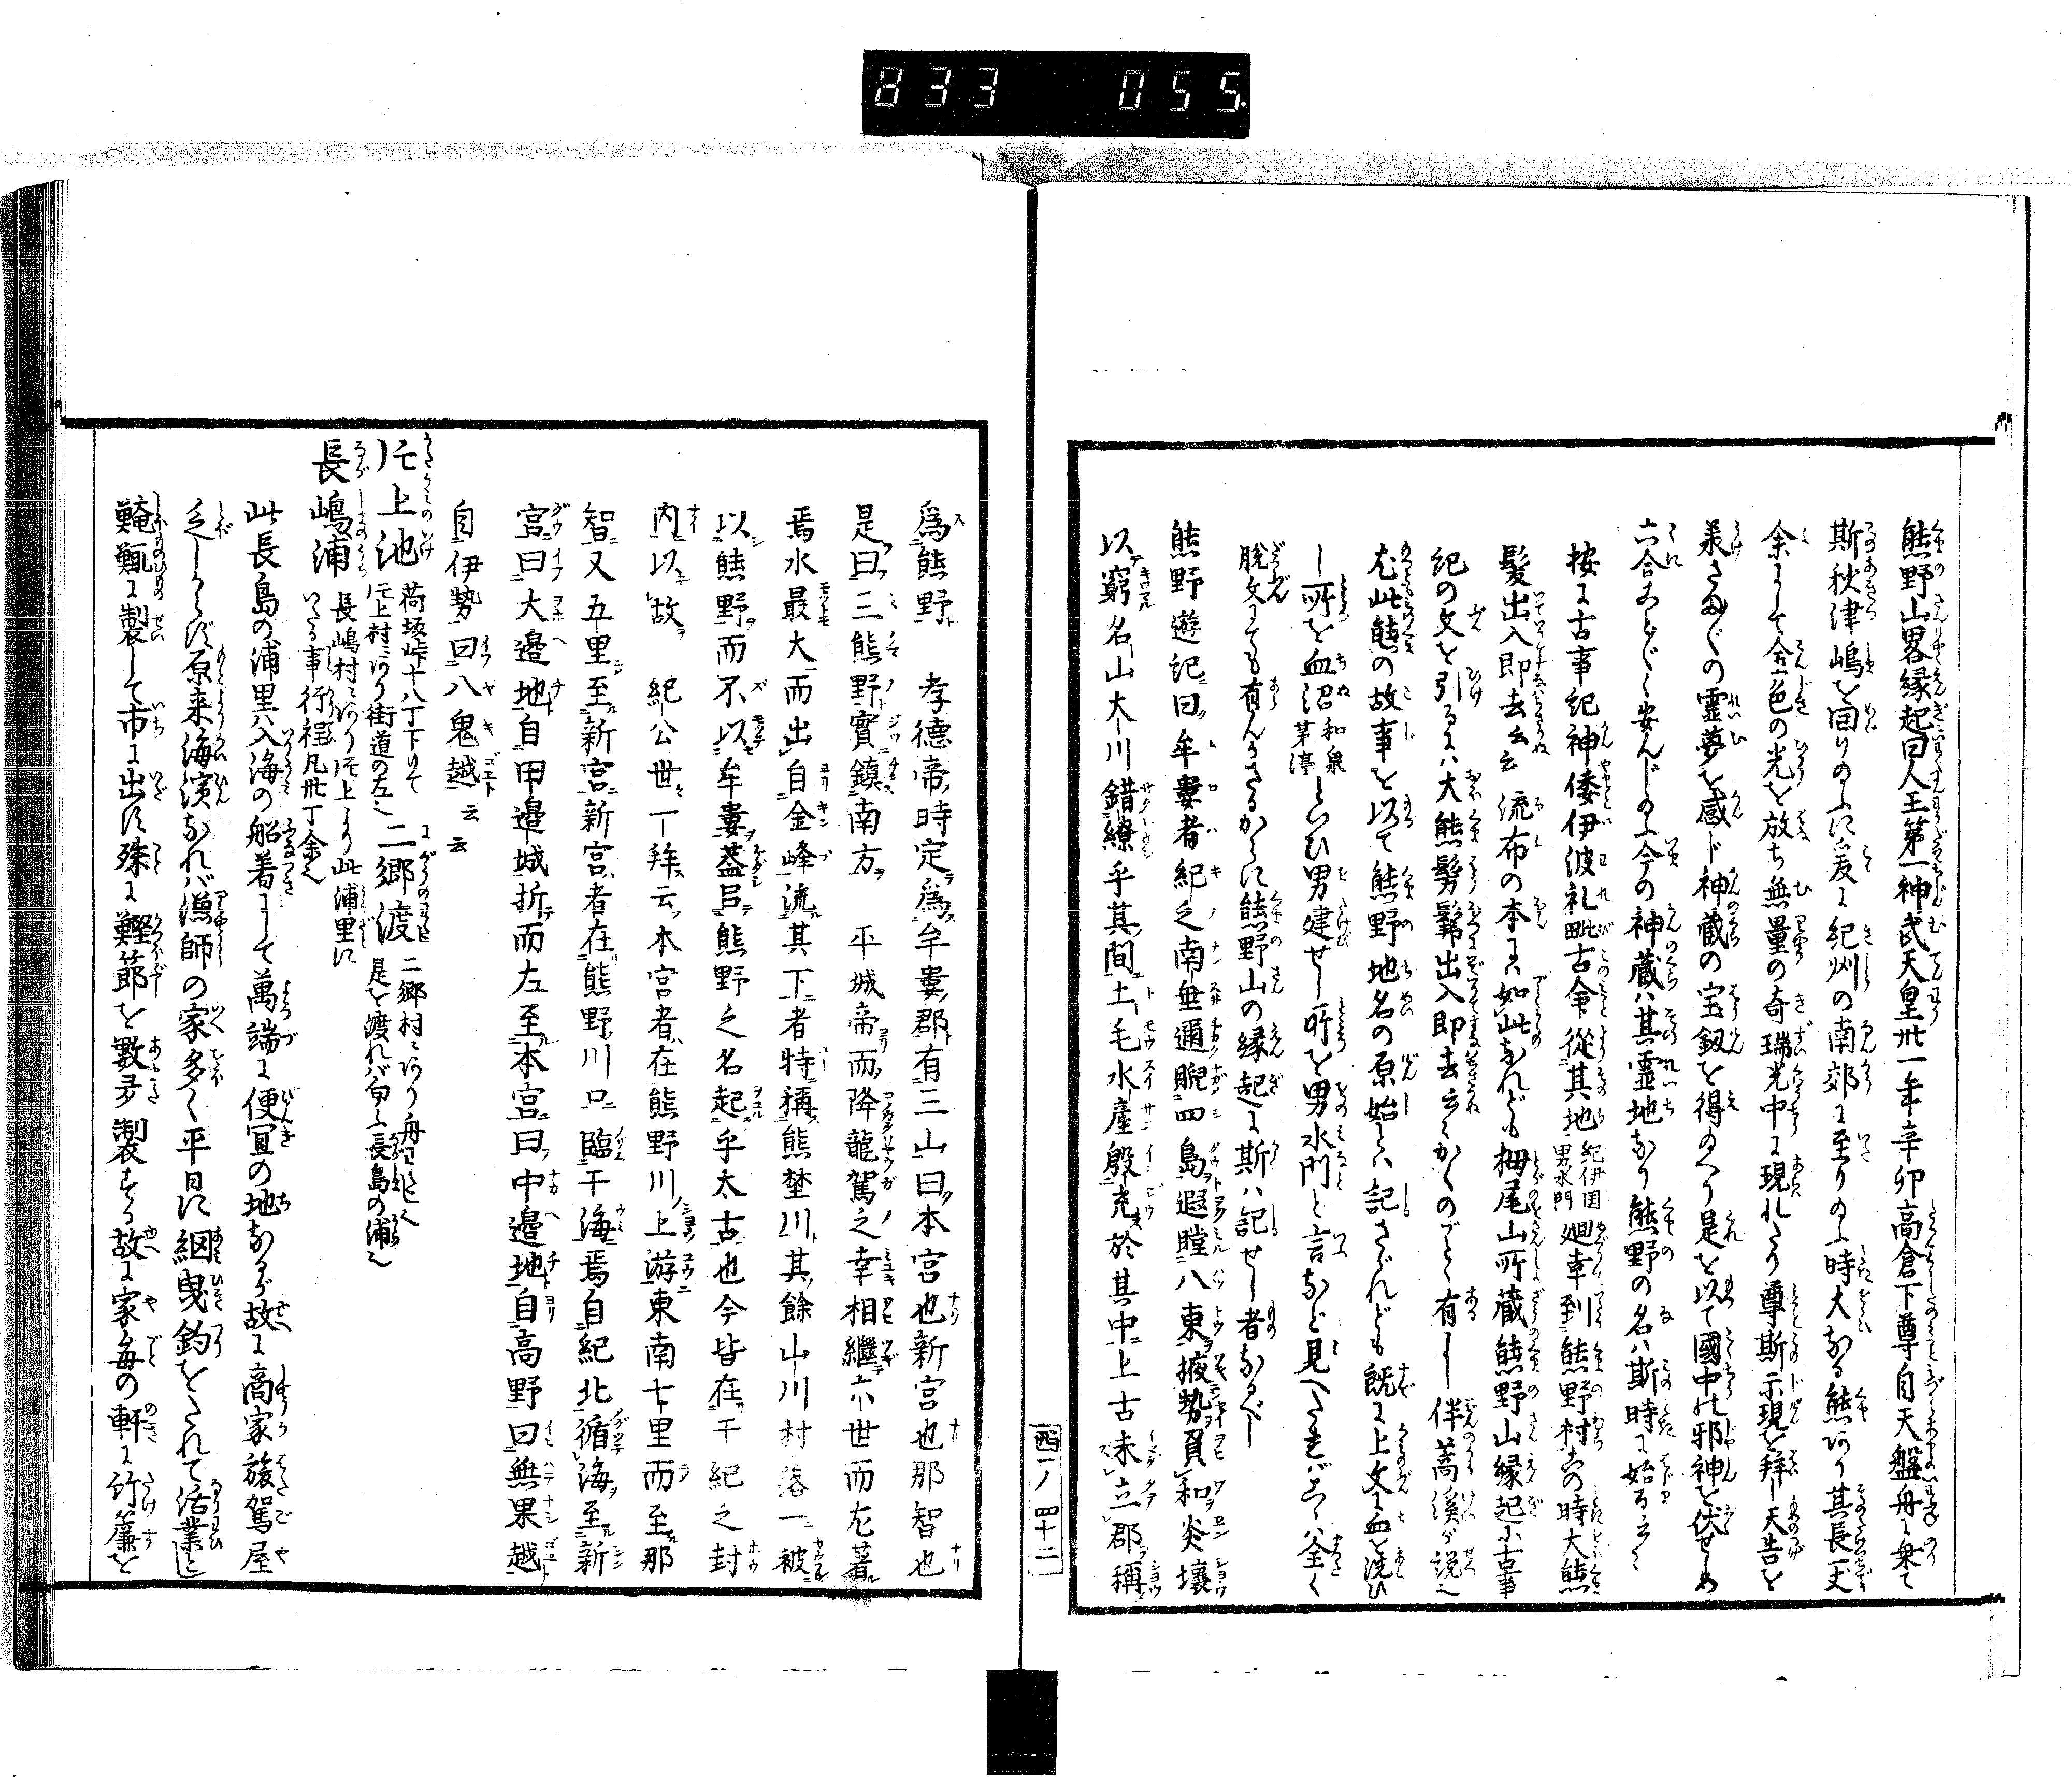 833 055
熊野山畧縁起曰人王第一神武天皇卅一年辛卯高倉下尊自天盤舟に乗て
斯秋津嶋を回りのふに爰に紀刕の南郊に至りのふ時大なる熊あり其長一丈
余にして金色の光を放ち無量の奇瑞光中に現れたり尊斯示現を拜し天告を
羕さるゝの霊夢を感じ神藏の宝釼を得のへり是を以て國中の邪神を伏せしめ
六合ことごとく安んじのふ今の神藏ハ其霊地なり熊野の名ハ斯時に始る云々
按に古事紀神倭伊波礼毗古命從其地紀伊国男水門廻幸到熊野村之時大熊
髪出入即去云云流布の本にハ如此なれども栂尾山所藏熊野山縁起に古事
紀の文を引るにハ大熊髣髴出入即去云々かくのごとく有し伴蒿溪が説に
も此熊の故事を以て熊野地名の原始とハ記されども既に上文に血を洗ひ
し所を血沼和泉茅渟といひ男建せし所を男水門と言など見へたれバこゝハ全く
脱文にても有んかさるからに熊野山の縁起に斯ハ記せし者なるべし
熊野遊記曰牟婁者紀之南垂邇睨四島遐瞠八東掖勢負和炎壤
以窮名山大川錯繚乎其間土毛水產殷充於其中上古未立郡稱
西一ノ四十二
爲熊野 孝德帝時定爲牟婁郡有三山曰本宮也新宮也那智也
是曰三熊野實鎮南方 平城帝而降龍駕之幸相繼六世而尨著
焉水最大而出自金峰流其下者特稱熊埜川其餘山川村落一被
以熊野而不以牟婁葢㠯熊野之名起乎太古也今皆在干紀之封
内以故 紀公世一拜云本宮者在熊野川上游東南七里而至那
智又五里至新宮新宮者在熊野川口臨干海焉自紀北循海至新
宮曰大邉地自田邉城折而左至本宮曰中邉地自高野曰無果越
自伊勢曰八鬼越云云
片上池 荷坂峠十八丁下りて片上村にあり街道の左に 二郷渡 二郷村にあり舟わたし是を渡れバ向ふ長島の浦へ
長嶋浦 長嶋村にあり片上より此浦里にいたる事行程凡卅丁余
此長島の浦里ハ入海の船着にして萬端に便宜の地なるが故に商家旅駕屋
乏しからず原来海濱なれバ漁師の家多く平日に網曳釣をたれて活業と
し醃䱊に製して市に出す殊に鰹節を數多製する故に家毎の軒に竹簾を